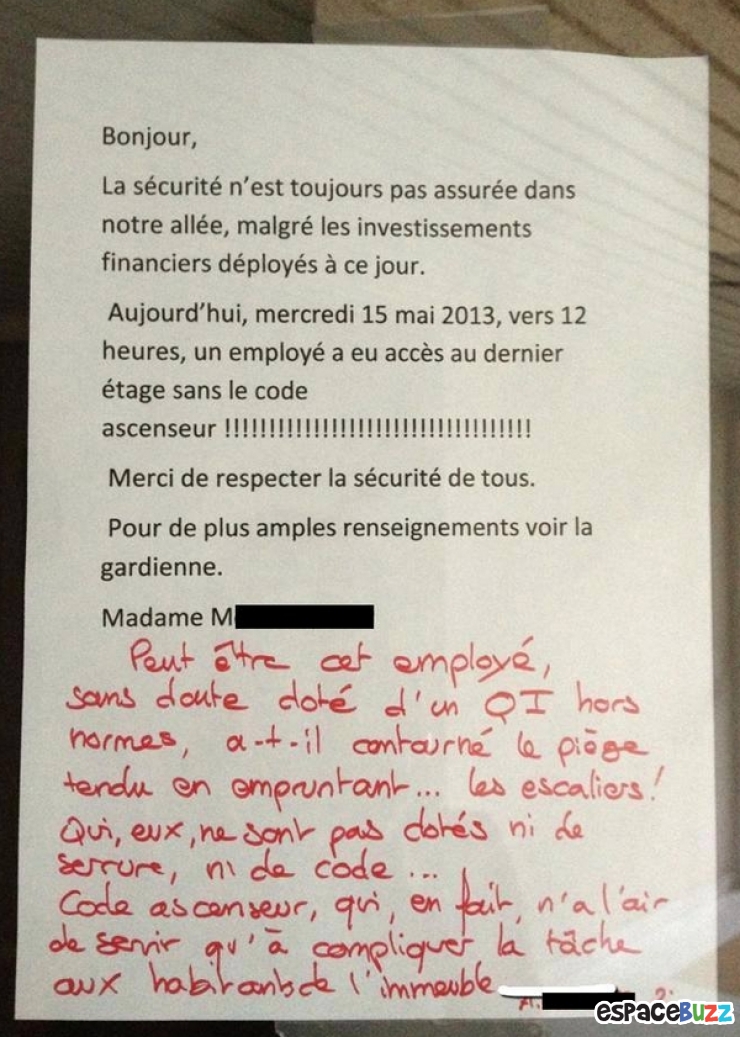 Bonjour,
La sécurité n'est toujours pas assurée dans
notre allée, malgré les investissements
financiers déployés à ce jour.
Aujourd'hui, mercredi 15 mai 2013, vers 12
heures, un employé a eu accès au dernier
étage sans le code
ascenseur !!!!!!!!!!!!!!!!!!!!!!!!!!!!!!!!!!!
Merci de respecter la sécurité de tous.
Pour de plus amples renseignements voir la
gardienne.
Madame M
Peut être cet employé,
sans doute doté d'un QI hors
normes, a-t-il contourné le piège
tendu en empruntant... les escaliers!
Qui, eux, ne sont pas dotés ni de
serrure, ni de code...
Code ascenseur, qui, en fait, n'a l'air
de servir qu'à compliquer la tâche
aux habitants de l'immeuble
espaceBuzz